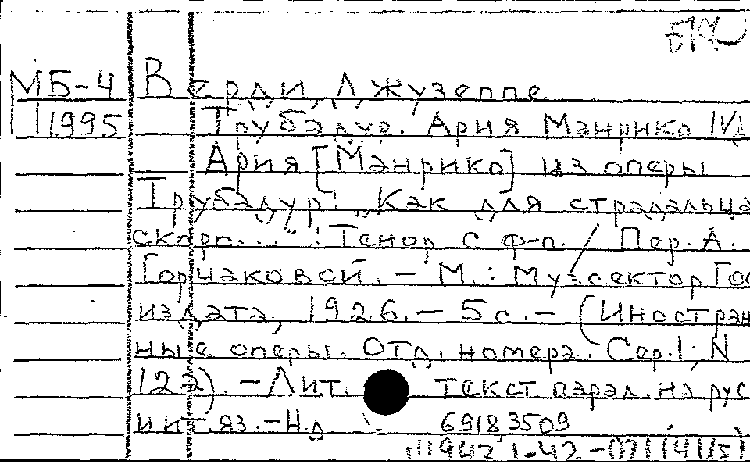 МБ-4 Верди, Джузеппе
11995 Трубадур. Ария Манрико IVд
Ария [Манрико] из оперы
Трубадур: "Как для страдальца
скоро..." : Тенор с ф-п. / Пер. А.
Горчаковой. - М.: Музсектор Гос
издата, 1926. - 5 с. - (Иностран
ные оперы. Отд. номера. Сер. I; N
122). - Лит. текст парал. на рус
и ит. яз. - Н.д
69183509